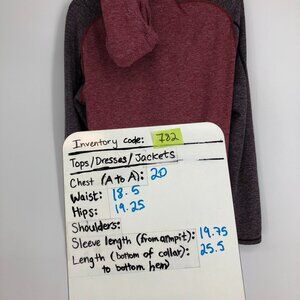 Inventory code: 782
Tops/Dresses/Jackets
Chest (A to A): 20
Waist: 18.5
Hips: 19.25
Shoulders:
Sleeve length (from armpit): 19.75
Length (bottom of collar): 25.5
to bottom hem)